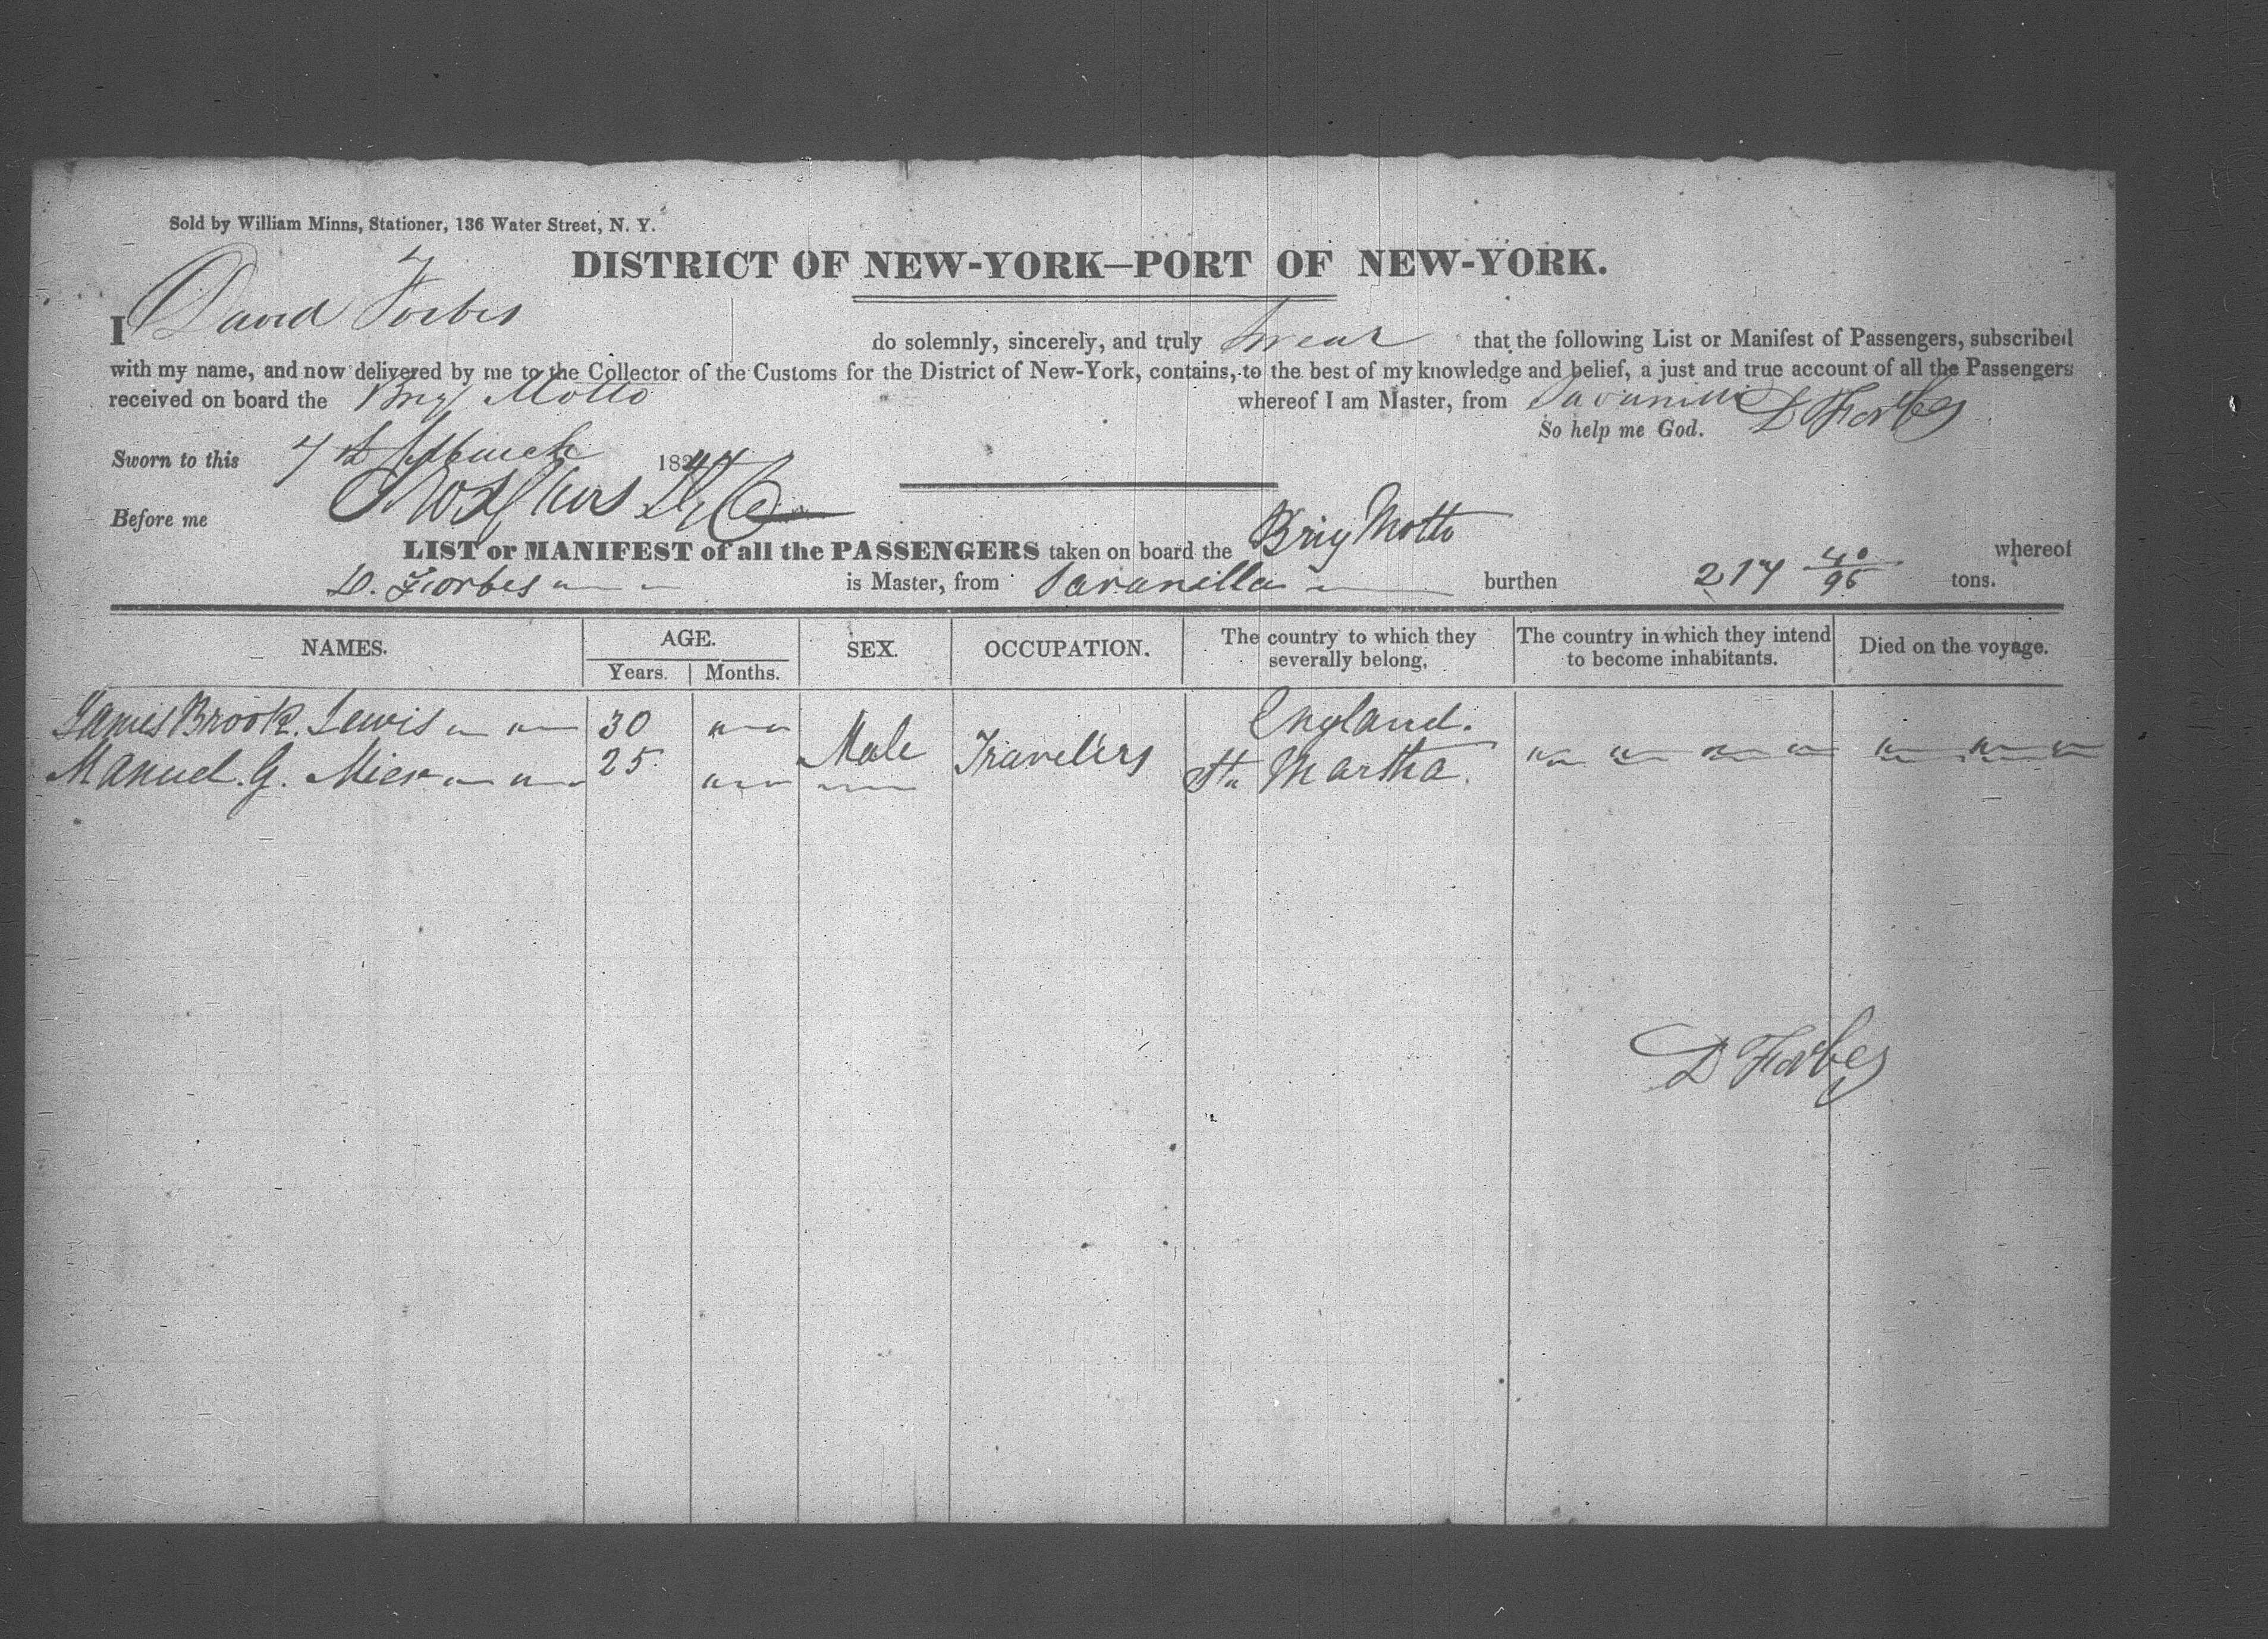 Sold by William Minns, Stationer, 136 Water Street, N. Y.
DISTRICT OF NEW-YORK—PORT OF NEW-YORK.
I David Forbes do solemnly, sincerely, and truly swear that the following List or Manifest of Passengers, subscribed
with my name, and now delivered by me to the Collector of the Customs for the District of New-York, contains, to the best of my knowledge and belief, a just and true account of all the Passengers
received on board the Brig Motto whereof I am Master, from Savanilla D Forbes
So help me God.
Sworn to this 7th March 1847
Before me
LIST or MANIFEST of all the PASSENGERS taken on board the Brig Motto whereof
D. Forbes is Master, from Savanilla burthen 217 40/95 tons.
NAMES. AGE. SEX. OCCUPATION. The country to which they severally belong, The country in which they intend to become inhabitants. Died on the voyage.
Years. Months.
James Brook. Lewis 30 Male Travelers England.
Manuel. G. Mier 25 Sta Martha.
D Forbes